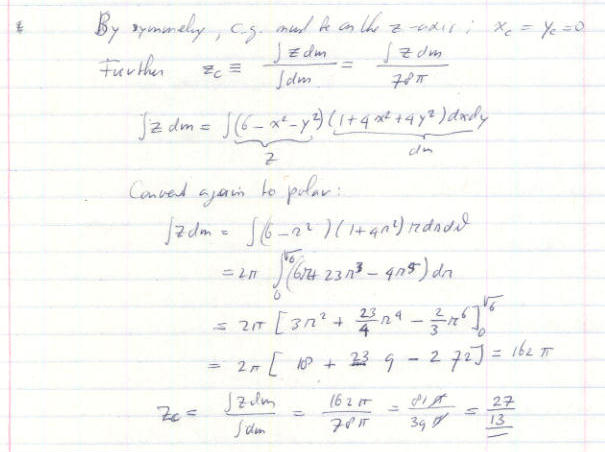 By symmetry, c.g. must be on the z-axis; x_c = y_c = 0
Further z_c ≡ ∫z dm / ∫dm = ∫z dm / 78π
∫z dm = ∫(6 - x² - y²)(1 + 4x² + 4y²) dx dy
z dm
Convert again to polar:
∫z dm = ∫(6 - r²)(1 + 4r²) r dr dϑ
= 2π ∫₀^√6 (6r + 23r³ - 4r⁵) dr
= 2π [3r² + 23/4 r⁴ - 2/3 r⁶]₀^√6
= 2π [18 + 23 9 - 2 72] = 162π
z_c = ∫z dm / ∫dm = 162π / 78π = 81π / 39π = 27 / 13